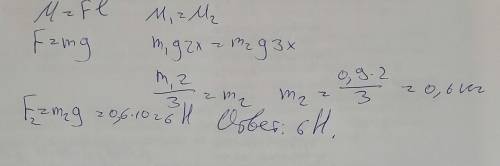 M = Fl M₁ = M₂
F = mg m₁g2x = m₂g3x
m₁2/3 = m₂ m₂ = 0,9·2/3 = 0,6 кг
F₂ = m₂g = 0,6·10 = 6 Н Ответ: 6 Н.